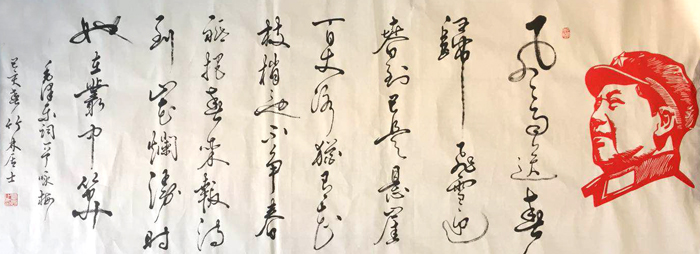 风雨送春
歸飛雪迎
春到已是悬崖
百丈冰犹有花
枝俏也不争春
祇把春来報待
到山花爛漫时
她在叢中笑
毛泽东词一首咏梅
己亥春竹林居士